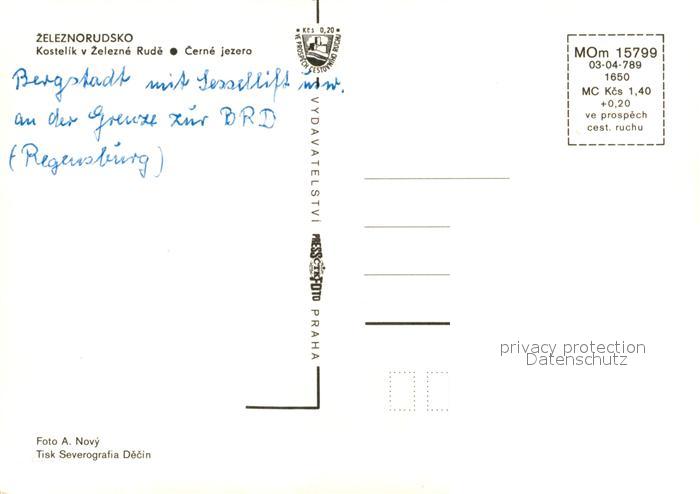 ŽELEZNORUDSKO
Kostelík v Železné Rudě ● Černé jezero
Bergstadt mit Sessellift usw.
an der Grenze zur BRD
(Regensburg)
Kčs 0,20
VE PROSPĚCH CESTOVNÍHO RUCHU
VYDAVATELSTVÍ
PRESSFOTO
ČTK
PRAHA
MOm 15799
03-04-789
1650
MC Kčs 1,40
+0,20
ve prospěch
cest. ruchu
privacy protection
Datenschutz
Foto A. Nový
Tisk Severografia Děčín